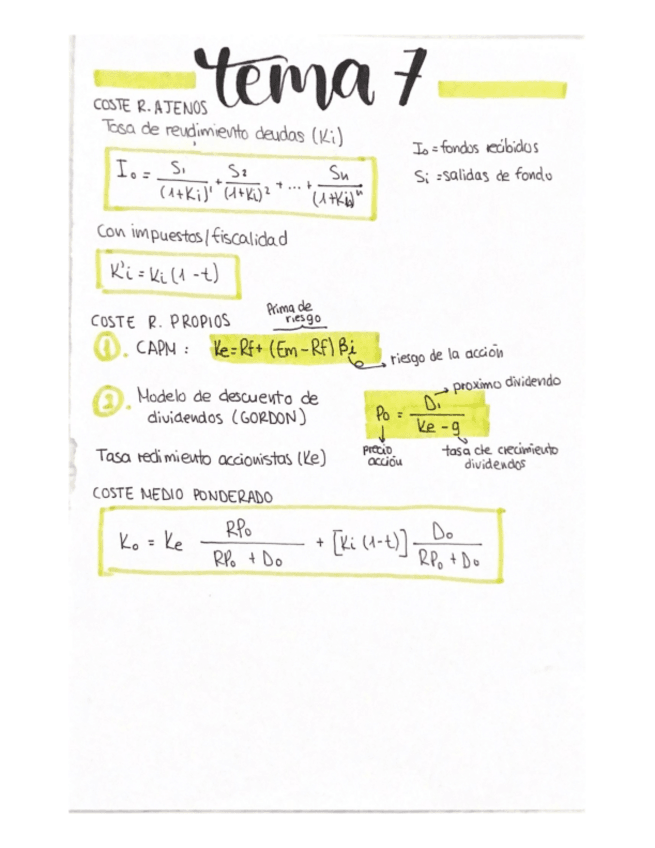 tema 7
COSTE R. AJENOS
Tasa de rendimiento deudas (Ki)
I₀ = fondos recibidos
Si = salidas de fondo
I₀ = S₁/(1+Ki)¹ + S₂/(1+Ki)² + ... + Sn/(1+Ki)ⁿ
Con impuestos/fiscalidad
K'i = Ki (1 - t)
COSTE R. PROPIOS
Prima de
riesgo
1. CAPM : Ke = Rf + (Em - Rf) βi
riesgo de la acción
2. Modelo de descuento de
dividendos (GORDON)
proximo dividendo
P₀ = D₁/(Ke - g)
precio
acción
tasa de crecimiento
dividendos
Tasa redimiento accionistas (Ke)
COSTE MEDIO PONDERADO
K₀ = Ke RP₀/(RP₀ + D₀) + [Ki (1-t)] D₀/(RP₀ + D₀)